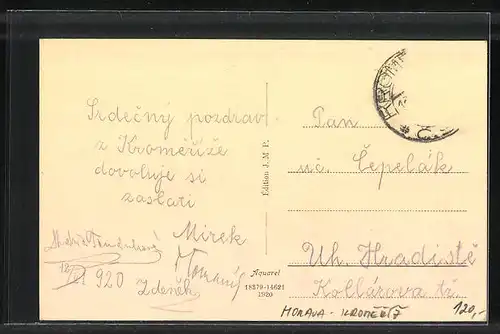 Srdečný pozdrav
z Kroměříže
dovoluje si
zaslati
Mirek
920
Zdeněk
Édition J. M. P.
Aquarel
18379-14621
1920
KROM
Pan
uč. Čepelák
Uh. Hradiště
Kollárova tř.
MORAVA - KROMĚŘÍŽ
120,-